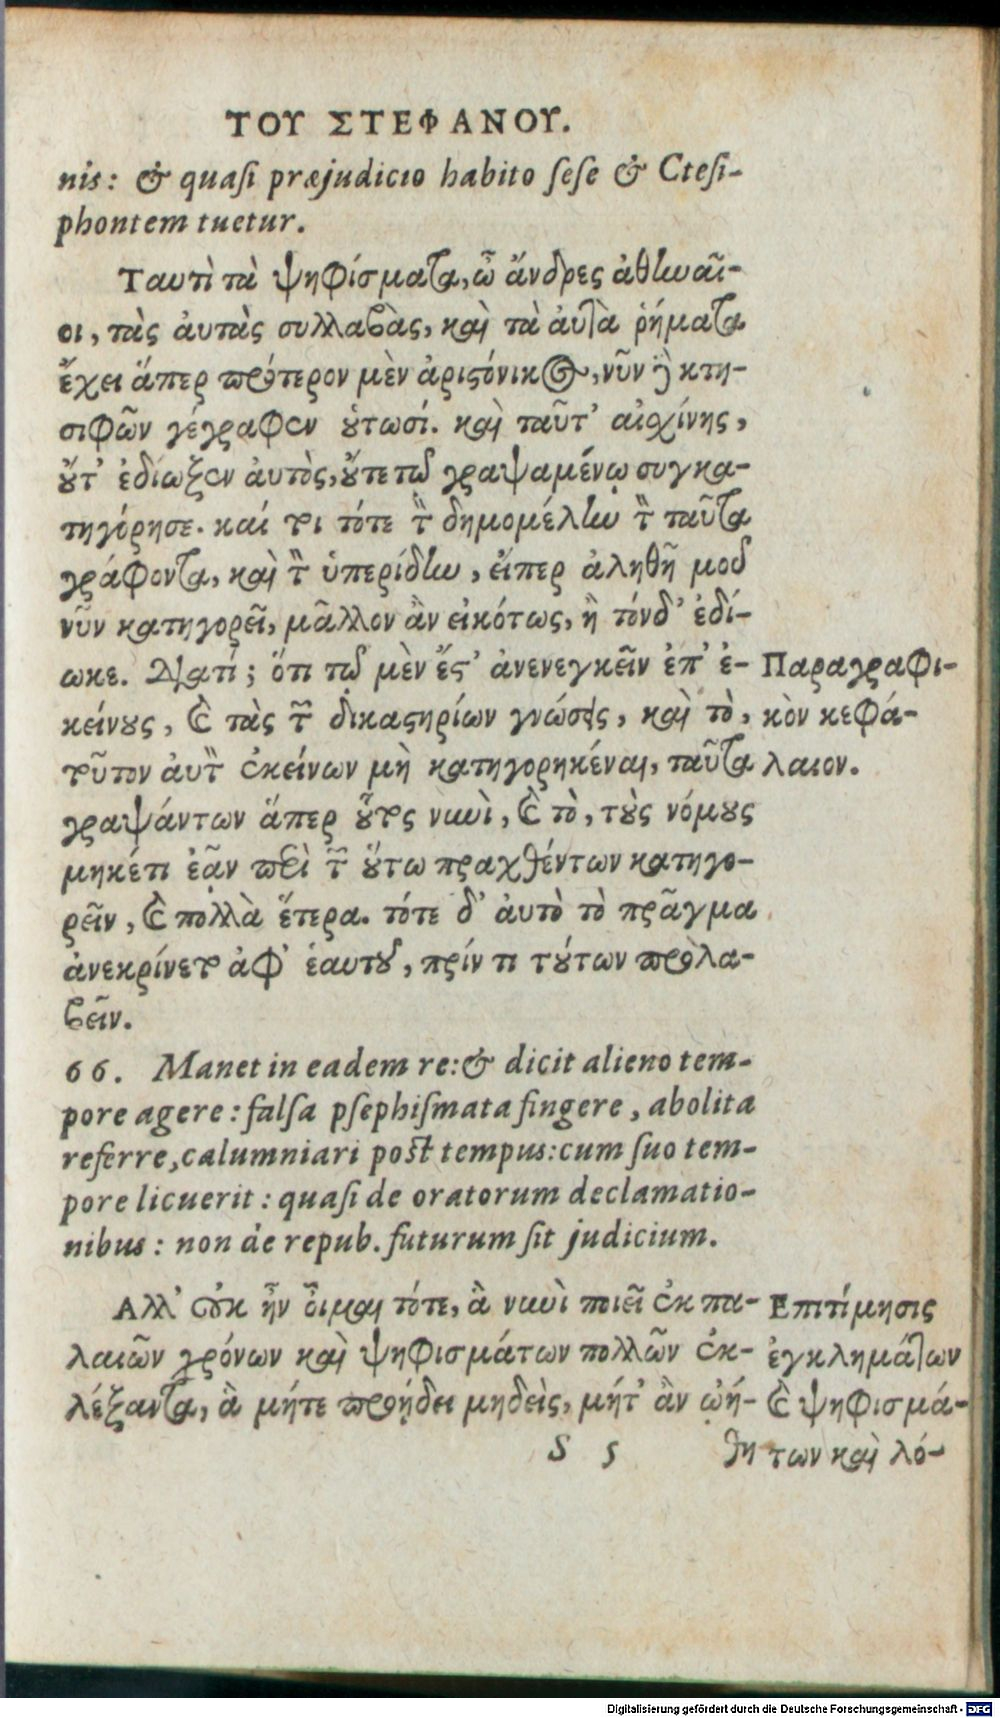 ΤΟΥ ΣΤΕΦΑΝΟΥ.
nis: & quasi præjudicio habito sese & Ctesi-
phontem tuetur.
Ταυτὶ τὰ ψηφίσματα, ὦ ἄνδρες ἀθηναῖ-
οι, τὰς ἀυτὰς συλλαβὰς, καὶ τὰ ἀυτὰ ῥήματα
ἔχει ἅπερ πρότερον μὲν ἀριστόνικος, νῦν δὲ κτη-
σιφῶν γέγραφεν οὑτωσί. καὶ ταῦτ' αἰσχίνης,
οὔτ' ἐδίωξεν ἀυτὸς, οὔτε τῷ γραψαμένῳ συγκα-
τηγόρησε. καί τοι τότε τὸν δημομέλην τὸν ταῦτα
γράφοντα, καὶ τὸν ὑπερίδην, ἔιπερ ἀληθῆ μου
νῦν κατηγορεῖ, μᾶλλον ἂν εἰκότως, ἢ τόνδ' ἐδί-
ωκε. Διατί; ὅτι τῷ μὲν ἔστ' ἀνενεγκεῖν ἐπ' ἐ-
κείνους, καὶ τὰς τῶν δικαστηρίων γνώσεις, καὶ τὸ,
τοῦτον ἀυτὸν ἐκείνων μὴ κατηγορηκέναι, ταῦτα
γραψάντων ἅπερ οὗτος νυνὶ, καὶ τὸ, τοὺς νόμους
μηκέτι ἐᾷν περὶ τῶν οὕτω πραχθέντων κατηγο-
ρεῖν, καὶ πολλὰ ἕτερα. τότε δ' ἀυτὸ τὸ πρᾶγμα
ἀνεκρίνετο ἀφ' ἑαυτοῦ, πρίν τι τούτων προλα-
βεῖν.
Παραγραφι-
κὸν κεφά-
λαιον.
66. Manet in eadem re: & dicit alieno tem-
pore agere: falsa psephismata fingere, abolita
referre, calumniari post tempus: cum suo tem-
pore licuerit: quasi de oratorum declamatio-
nibus: non de repub. futurum sit judicium.
Αλλ' οὐκ ἦν ὄιμαι τότε, ἃ νυνὶ ποιεῖ ἐκ πα-
λαιῶν χρόνων καὶ ψηφισμάτων πολλῶν ἐκ-
λέξαντα, ἃ μήτε προῄδει μηδεὶς, μήτ' ἂν ᾠή-
Επιτίμησις
ἐγκλημάτων
καὶ ψηφισμά-
των καὶ λό-
S 5 θη
Digitalisierung gefördert durch die Deutsche Forschungsgemeinschaft - DFG